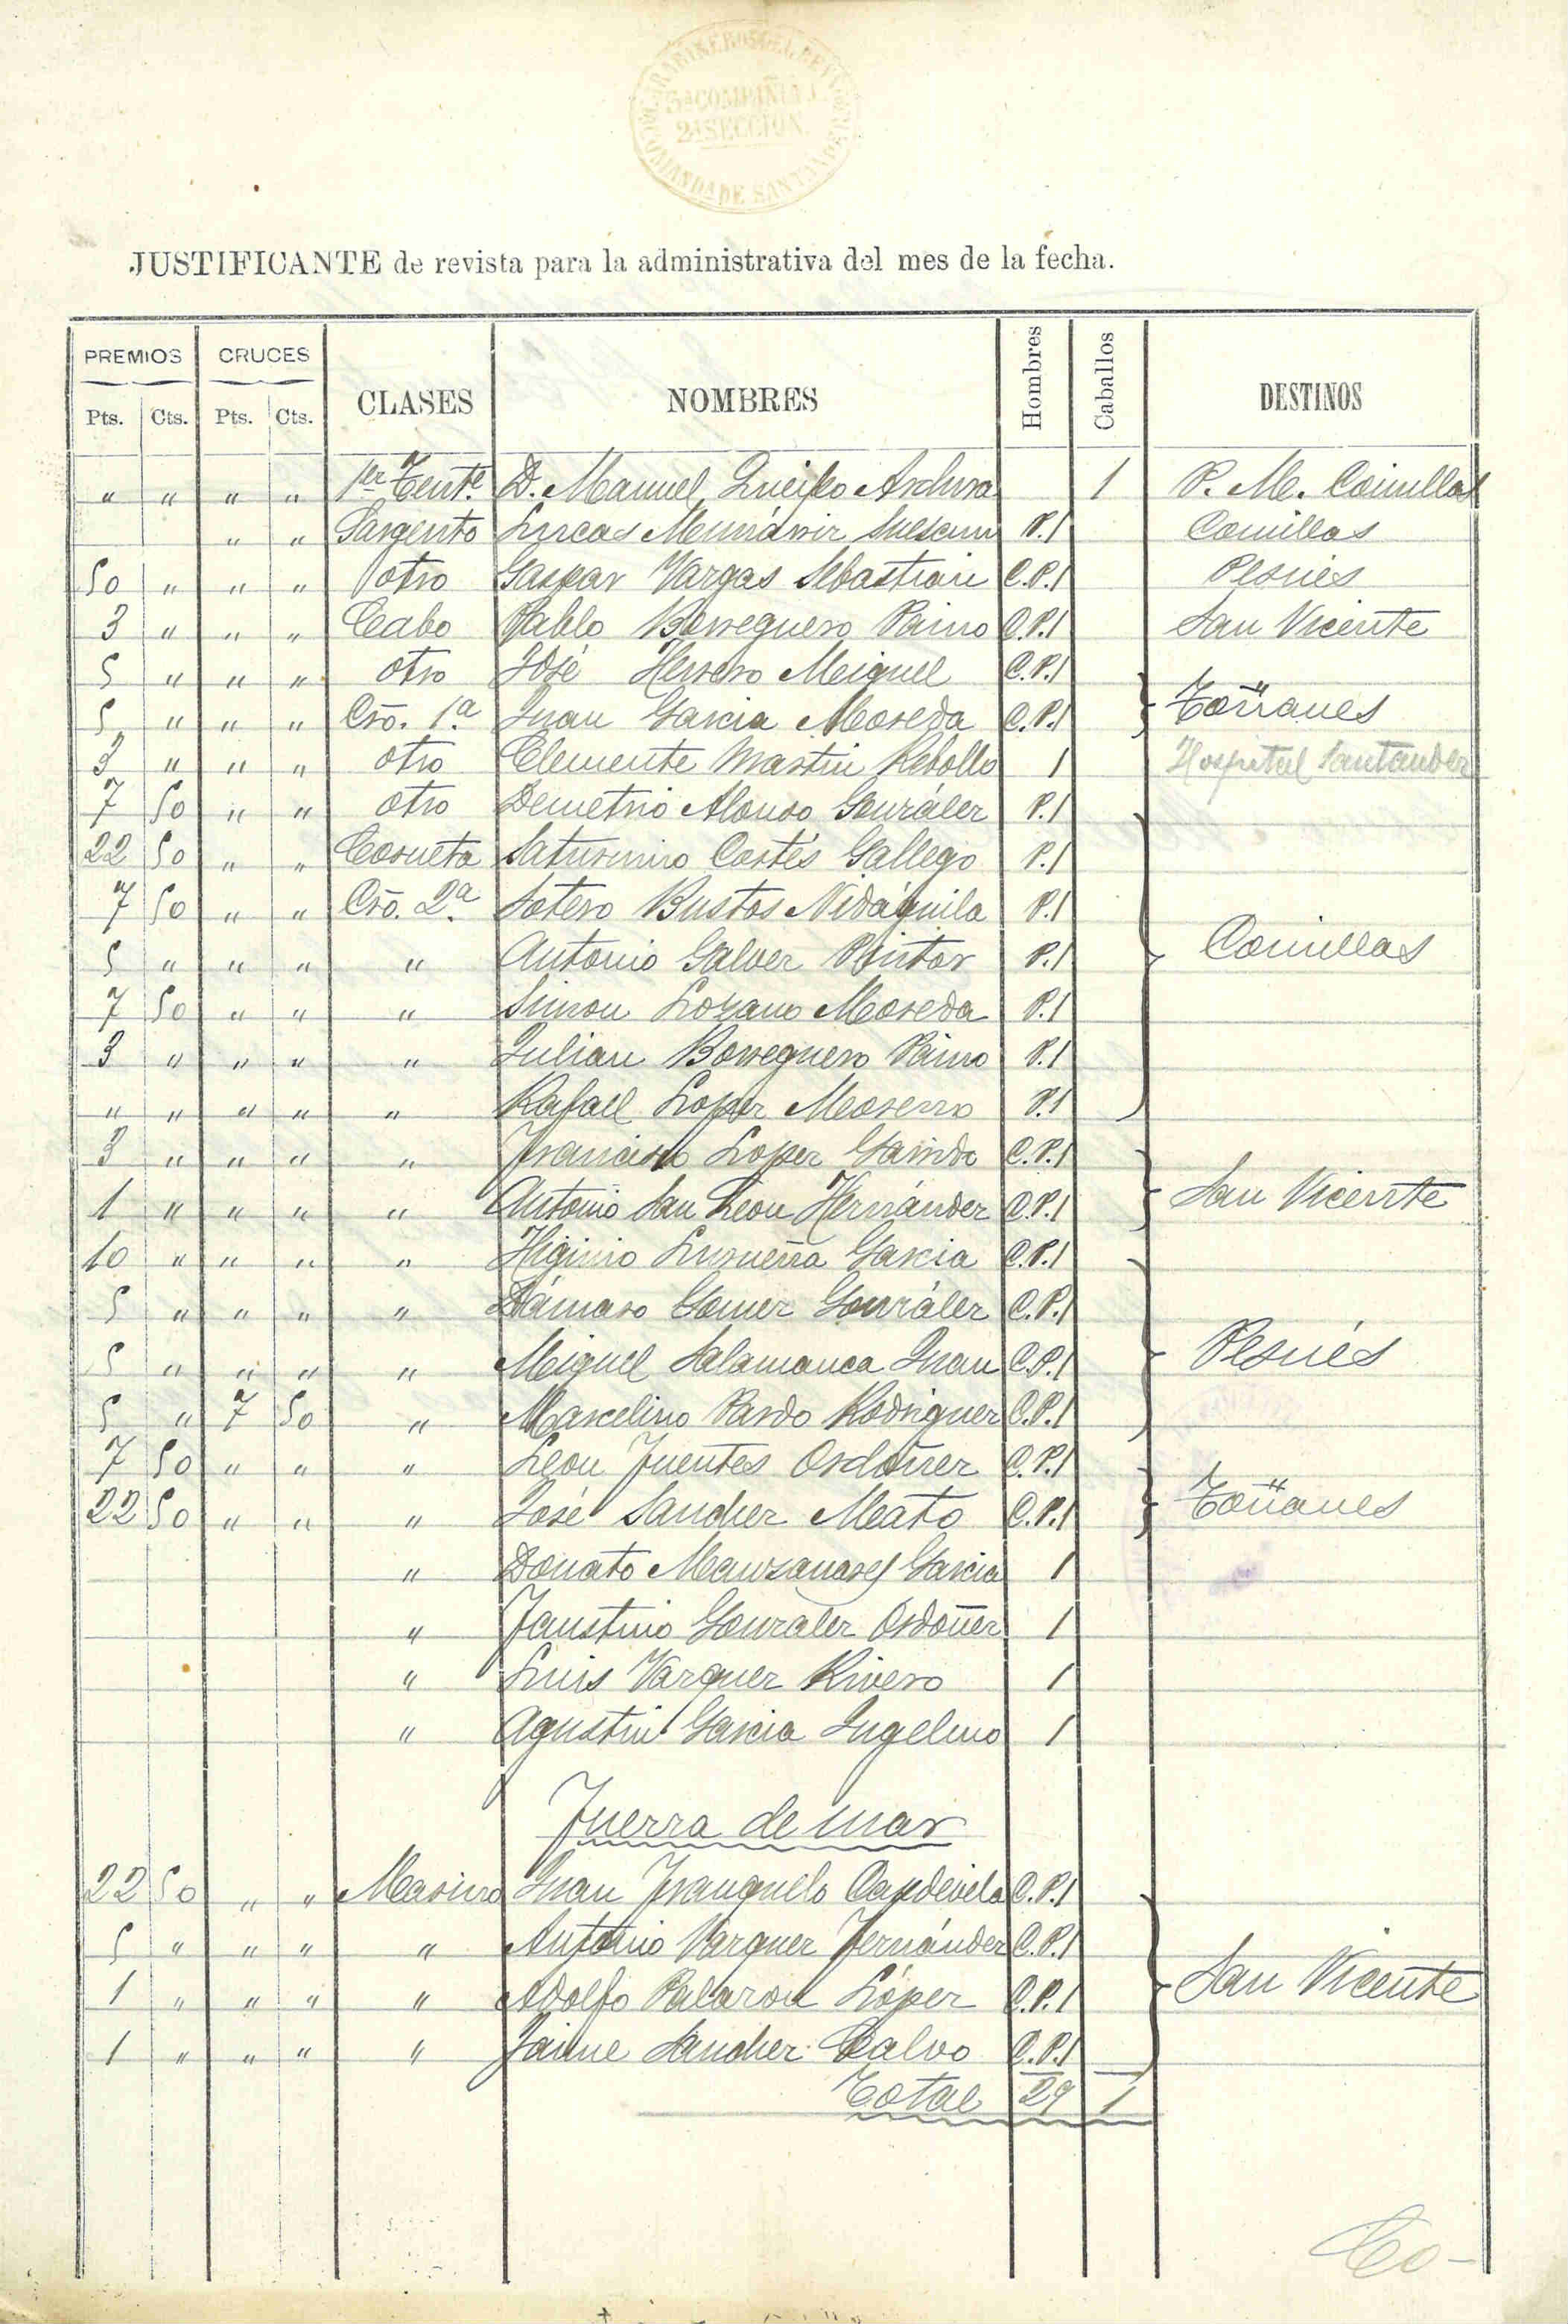 5ª COMPAÑIA
2ª SECCION.
COMANDA DE SANTANDER
JUSTIFICANTE de revista para la administrativa del mes de la fecha.
PREMIOS CRUCES CLASES NOMBRES Hombres Caballos DESTINOS
Pts. Cts. Pts. Cts.
" " " " 1er Tente. D. Manuel Queipo 1 P. M. Comillas
" " Sargento Lucas Munárriz P.1 Comillas
50 " " " otro Gaspar Vargas Sebastian C.P.1 Pesués
3 " " " Cabo Pablo Borreguero Paino C.P.1 San Vicente
5 " " " otro José Herrero Meiguel C.P.1
5 " " " Cro. 1ª Juan Garcia Moreda C.P.1 Toñanes
3 " " " otro Clemente Martin Rebollo 1 Hospital Santander
7 50 " " otro Demetrio Alonso González P.1
22 50 " " Corneta Saturnino Cortés Gallego P.1
7 50 " " Cro. 2ª Sotero Bustos Nidáguila P.1
5 " " " " Antonio Galvez Pintor P.1 Comillas
7 50 " " " Simon Lozano Moreda P.1
3 " " " " Julian Borreguero Paino P.1
" " " " " Rafael Lopez Moreno P.1
3 " " " " Francisco Lopez Garrido C.P.1
1 " " " " Antonio San Leon Hernández C.P.1 San Vicente
10 " " " " Higinio Luzueña Garcia C.P.1
5 " " " " Dámaso Gomez González C.P.1
5 " " " " Miguel Salamanca Juan C.P.1 Pesués
5 " 7 50 " Marcelino Pardo Rodriguez C.P.1
7 50 " " " Leon Fuentes Ordoñez C.P.1
22 50 " " " José Sanchez Mato C.P.1 Toñanes
" Donato Manzanares Garcia 1
" Faustino Gonzalez Ordoñez 1
" Luis Vazquez Rivero 1
" Agustin Garcia Ingelmo 1
Fuerza de mar
22 50 " " Marino Juan Franquelo Capdevila C.P.1
5 " " " " Antonio Vazquez Fernández C.P.1
1 " " " " Adolfo Palazon López C.P.1 San Vicente
1 " " " " Jaime Sanchez Calvo C.P.1
Total 29 1
Co-